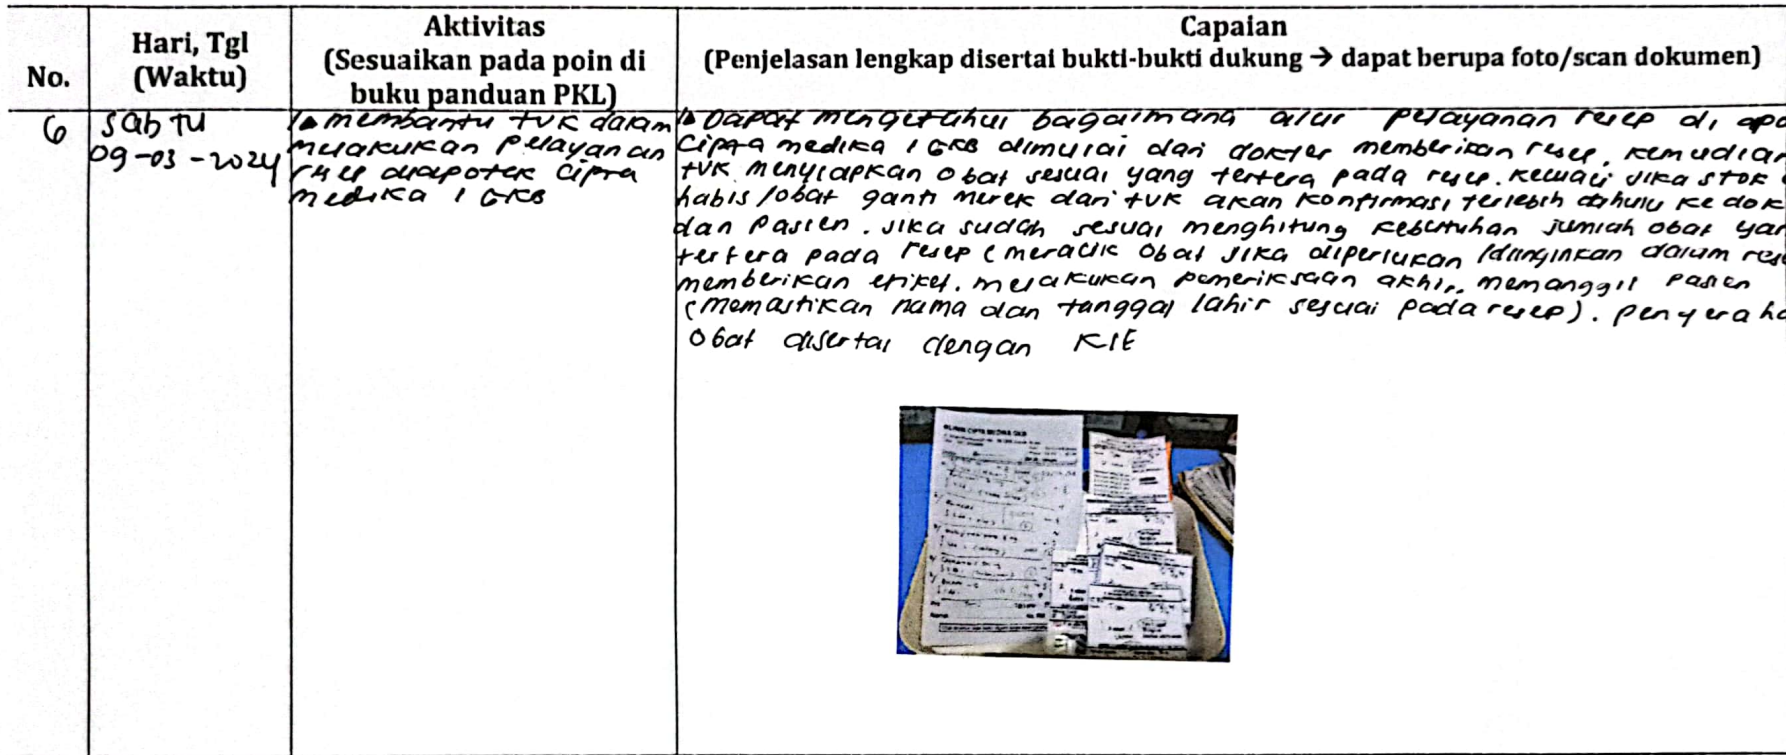 No.
Hari, Tgl
(Waktu)
Aktivitas
(Sesuaikan pada poin di
buku panduan PKL)
Capaian
(Penjelasan lengkap disertai bukti-bukti dukung → dapat berupa foto/scan dokumen)
6
Sabtu
09-03-2024
1. membantu TVK dalam
melakukan pelayanan
resep diapotek Cipta
medika 1 GKB
1. Dapat mengetahui bagaimana alur pelayanan resep di apo
Cipta medika 1 GKB dimulai dari dokter memberikan resep, kemudian
TVK menyiapkan obat sesuai yang tertera pada resep. kecuali jika stok
habis /obat ganti merek dari TVK akan konfirmasi terlebih dahulu ke dok
dan Pasien. Jika sudah sesuai menghitung kebutuhan jumlah obat yan
tertera pada resep (meracik obat jika diperlukan /diinginkan dalam rese
memberikan etiket. melakukan pemeriksaan akhir, memanggil Pasien
(memastikan nama dan tanggal lahir sesuai pada resep). penyeraha
Obat disertai dengan KIE
KLINIK CIPTA MEDIKA GKB